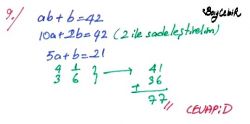 9/
BayÇebir
ab+b=42
10a+2b=92 (2 ile sadeleştirelim)
5a+b=21
4 1 } 41
3 6 } → 36
+
77 // CEVAP:D